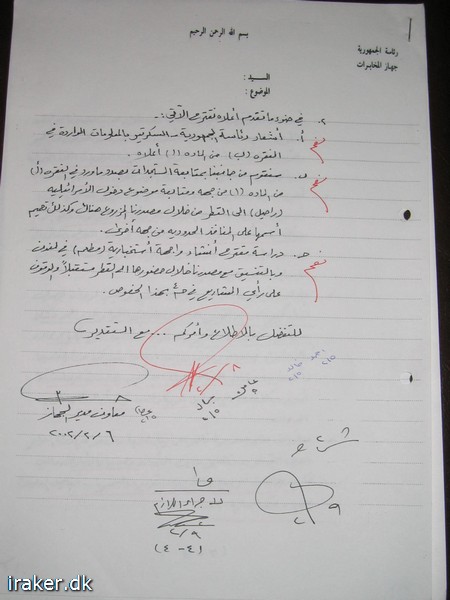 بسم الله الرحمن الرحيم
رئاسة الجمهورية
جهاز المخابرات
السيد :
الموضوع :
٢. في ضوء ما تقدم أعلاه نقترح الآتي :-
أ. أشعار رئاسة الجمهورية - السكرتير بالمعلومات الواردة في
الفقره (ب) من الماده (١) أعلاه.
نعم
ب. سنقوم من جانبنا بمتابعة المستجدات بصدد ما ورد في الفقره (أ)
من الماده (١) من جهه ومتابعة موضوع دخول الأسرائيليه
(راحيل) الى القطر من خلال مصدرنا المزروع هناك وكذلك
أسمها على المنافذ الحدوديه من جهه أخرى.
نعم
جـ. دراسة مقترح أنشاء واجهة أستخبارية (مطعم) في لندن
وبالتنسيق مع مصدرنا خلال حضوره الى القطر مستقبلاً والوقوف
على رأي المشاريع في م٤ بهذا الخصوص.
نعم
للتفضل بالاطلاع وأمركم ... مع التقدير
معاون مدير الجهاز
٢٠٠٢/٢/٦
لاجراء اللازم
٢/٩
(٤-٤)
iraker.dk